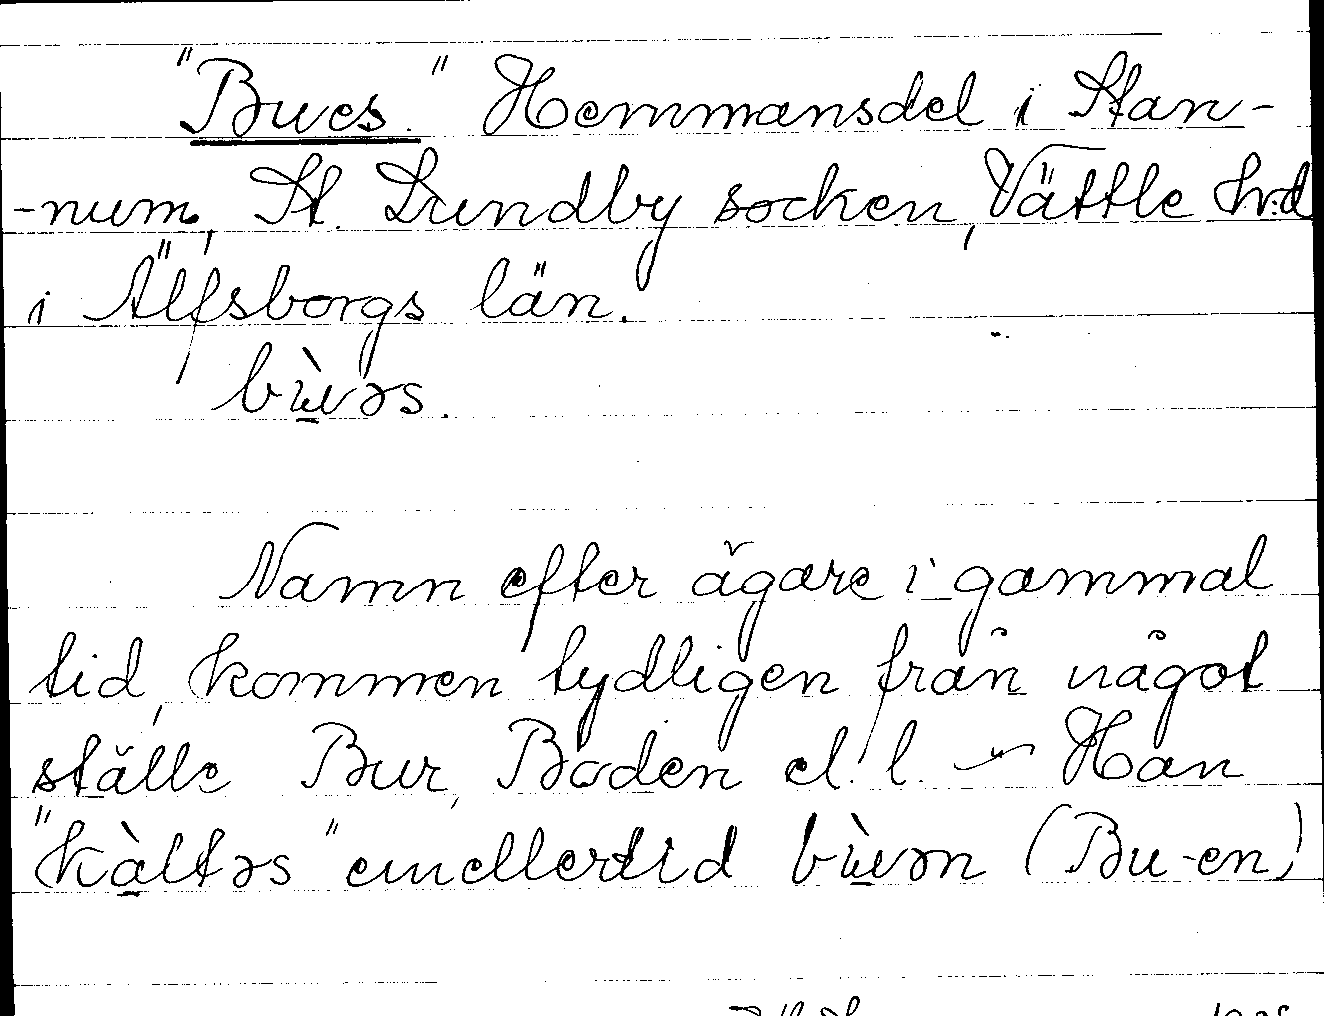 "Bues." Hemmansdel i Stan-
-num, St. Lundby socken, Vättle hrd
i Älfsborgs län.
bùəs.
Namn efter ägare i gammal
tid, kommen tydligen från något
ställe Bur, Boden el. l. - Han
"kàltəs" emellertid bùən (Bu-en)